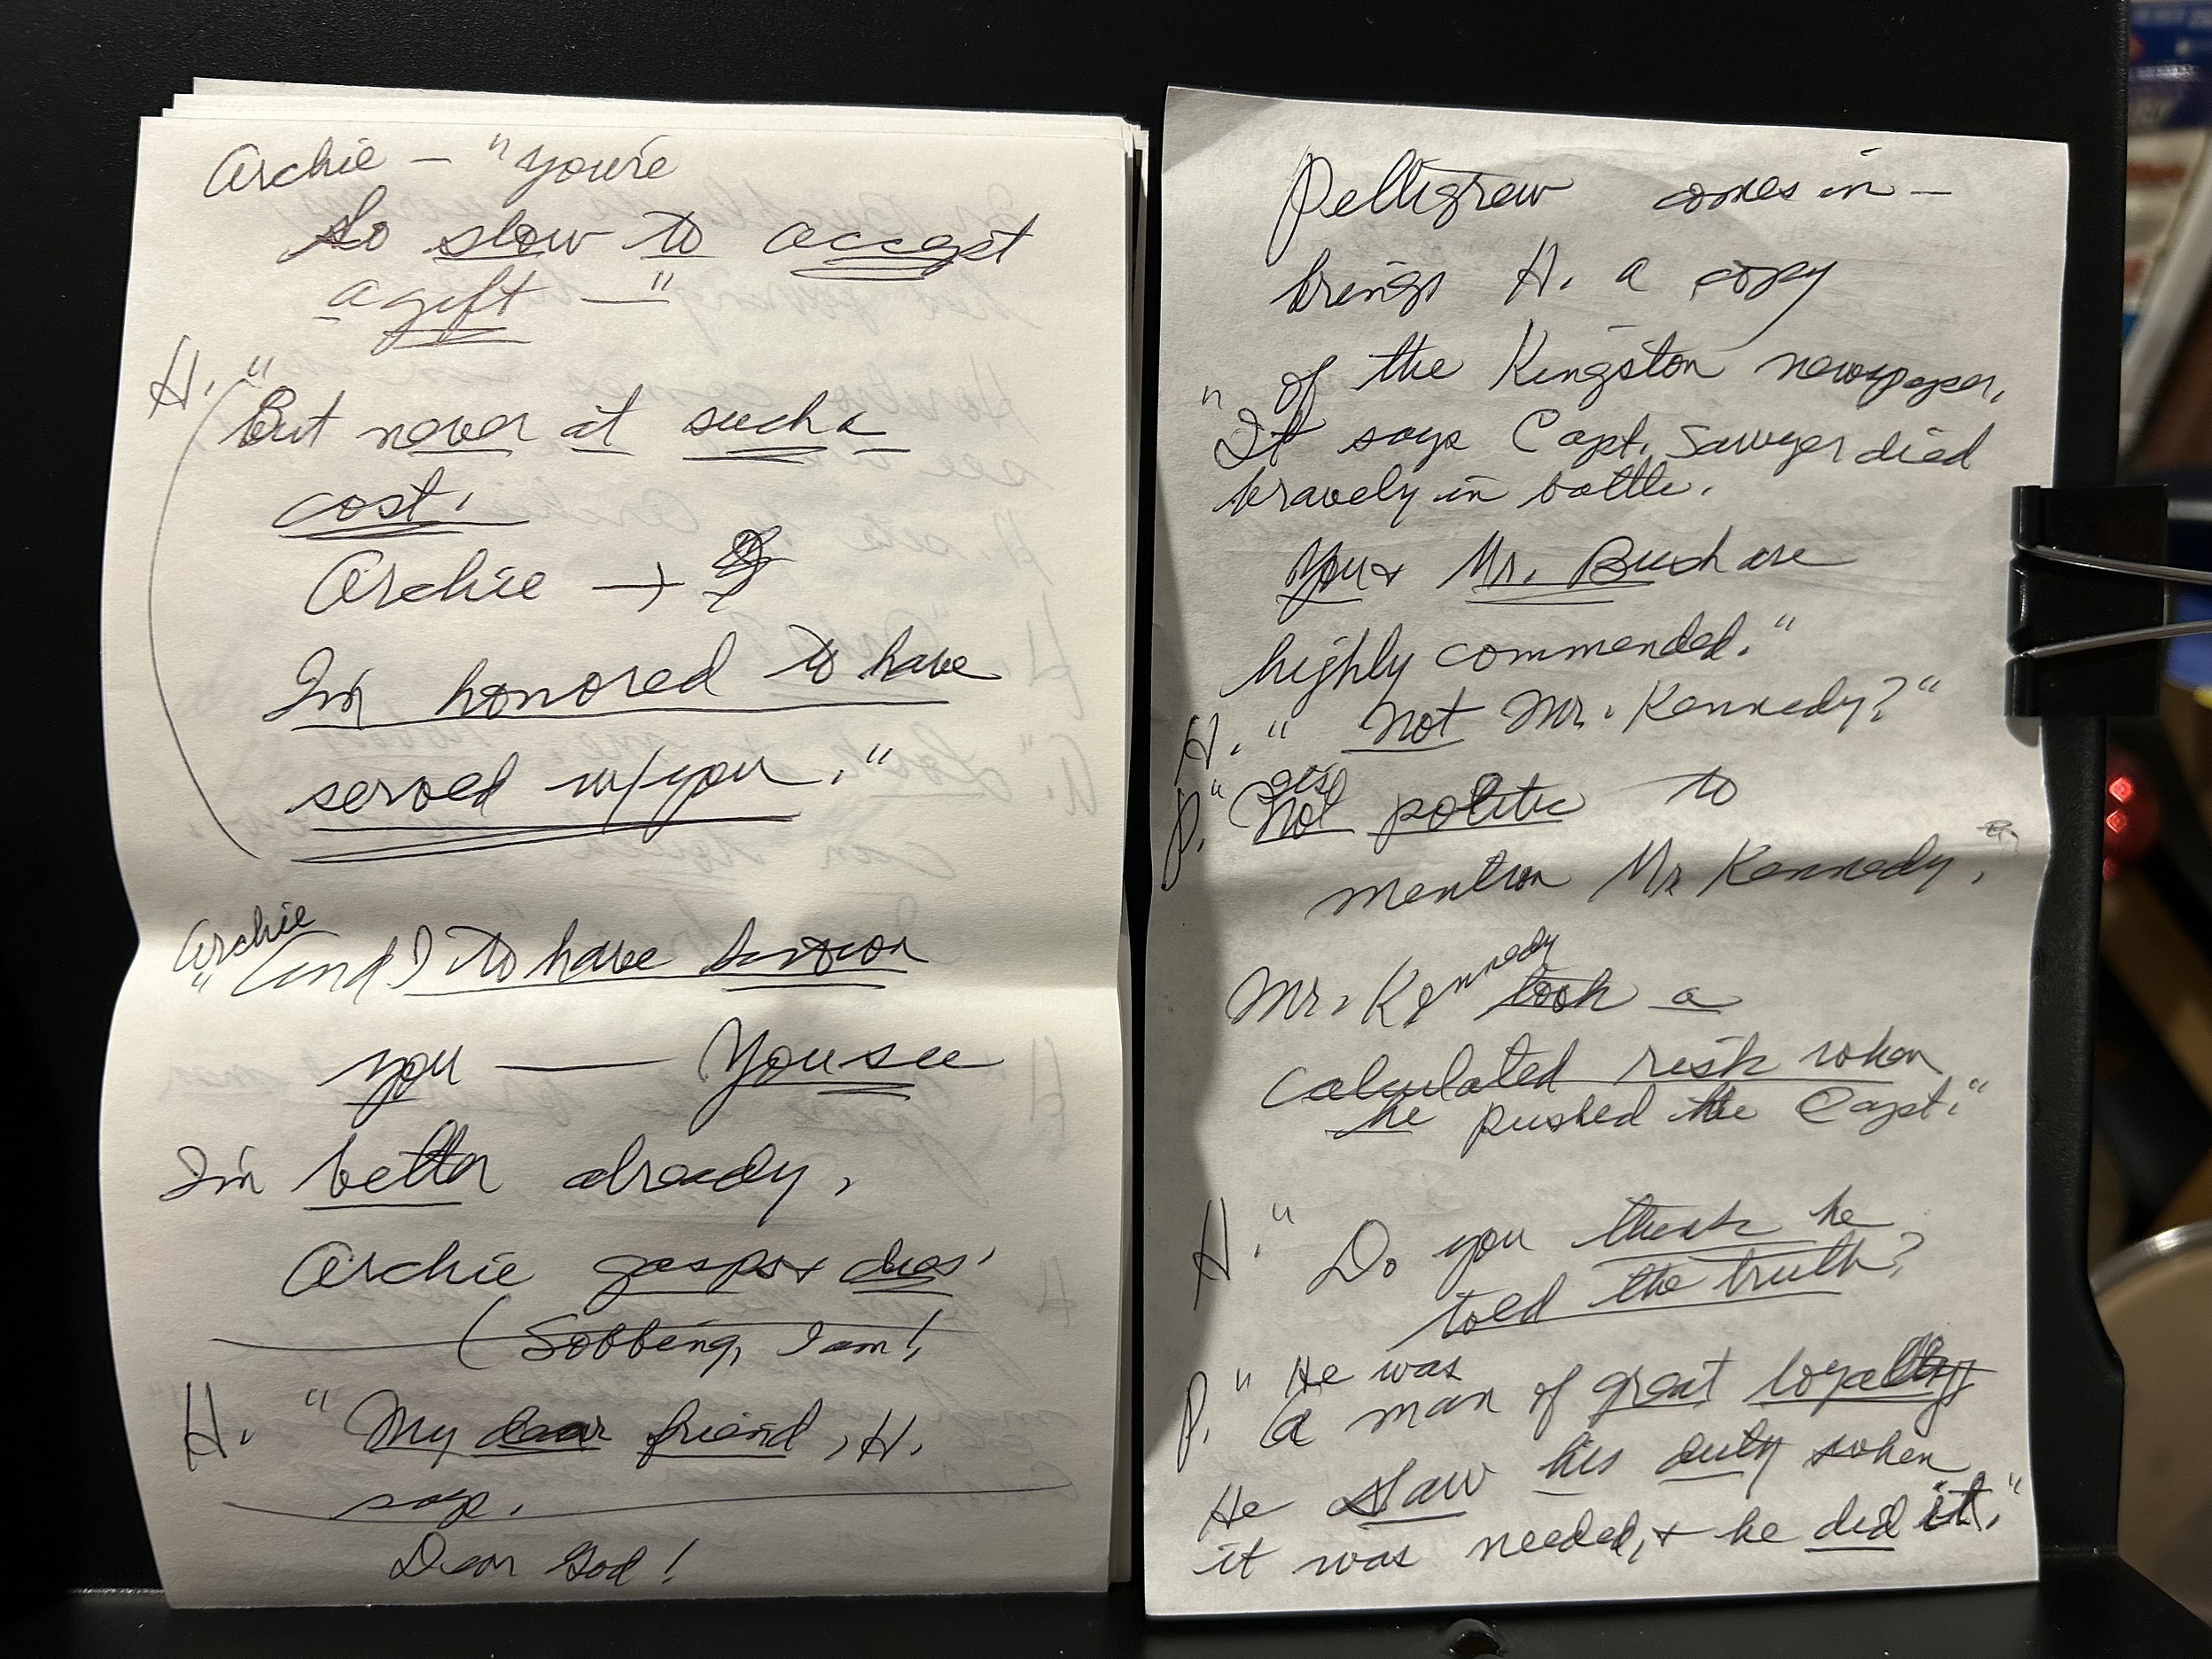 Archie — "You're
So slow to accept
a gift —"
H. "
But never at such a
cost.
Archie →
I'm honored to have
served w/you."
Archie
"(and) I to have known
you — You see
I'm better already.
Archie gasps & dies.
(Sobbing, I am!
H. "My dear friend, H.
says.
Dear God!
Pelligrew comes in —
brings H. a copy
of the Kingston newspaper.
"It says Capt. Sawyer died
bravely in battle.
You & Mr. Bush are
highly commended."
H. "Not Mr. Kennedy?"
P. "It's not politic to
mention Mr. Kennedy.
Mr. Kennedy took a
calculated risk when
he pushed the Capt."
H. "Do you think he
told the truth?
P. "He was
a man of great loyalty
He saw his duty when
it was needed, & he did it."